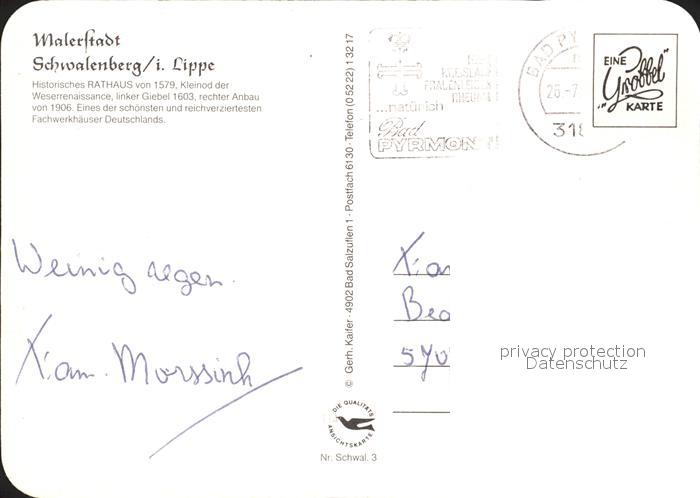 Malerstadt
Schwalenberg/i. Lippe
Historisches RATHAUS von 1579, Kleinod der
Weserrenaissance, linker Giebel 1603, rechter Anbau
von 1906. Eines der schönsten und reichverziertesten
Fachwerkhäuser Deutschlands.
Weinig regen.
Fam. Morssink
© Gerh. Kaifer · 4902 Bad Salzuflen 1 · Postfach 6130 · Telefon (0 52 22) 1 32 17
DIE QUALITÄTS
ANSICHTSKARTE
Nr. Schwal. 3
...natürlich
Bad
PYRMONT
BAD PY
26.-7
318
EINE
"Grobbel"
KARTE
Fam
Beo
570
privacy protection
Datenschutz